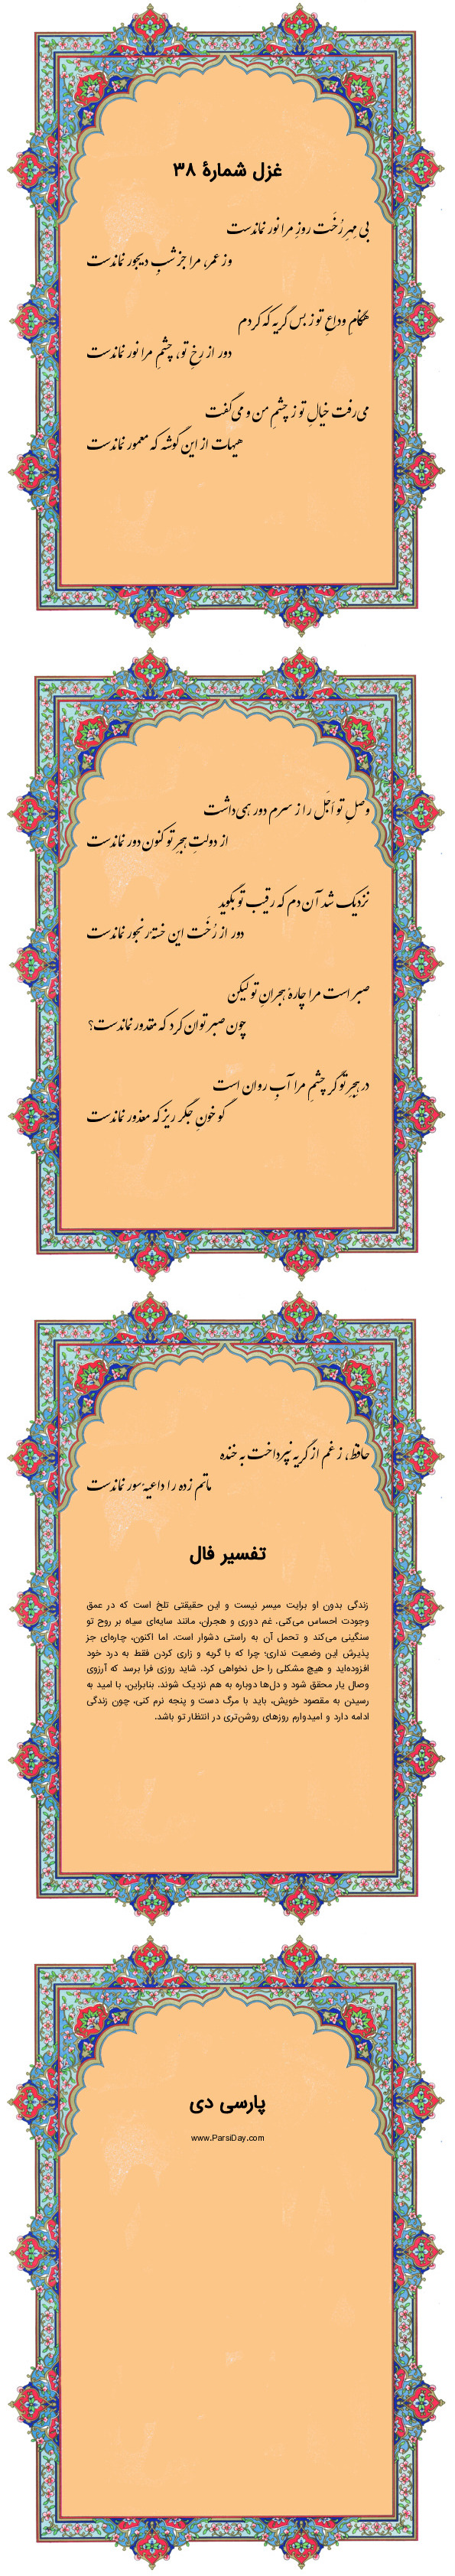 غزل شمارهٔ ۳۸
بی مِهرِ رُخَت روزِ مرا نور نمانده‌ست
وز عمر، مرا جز شبِ دیجور نمانده‌ست
هنگامِ وداعِ تو ز بس گریه که کردم
دور از رخِ تو، چشمِ مرا نور نمانده‌ست
می‌رفت خیالِ تو ز چشمِ من و می‌گفت
هیهات از این گوشه که معمور نمانده‌ست
وصلِ تو اَجَل را ز سرم دور همی‌داشت
از دولتِ هجرِ تو کنون دور نمانده‌ست
نزدیک شد آن دم که رقیبِ تو بگوید
دور از رُخَت این خستهٔ رنجور نمانده‌ست
صبر است مرا چارهٔ هجرانِ تو لیکن
چون صبر توان کرد که مقدور نمانده‌ست؟
در هِجرِ تو گر چشمِ مرا آبِ روان است
گو خونِ جگر ریز که معذور نمانده‌ست
حافظ، ز غم از گریه نپرداخت به خنده
ماتم زده را داعیهٔ سور نمانده‌ست
تفسیر فال
زندگی بدون او برایت میسر نیست و این حقیقتی تلخ است که در عمق
وجودت احساس می‌کنی. غم دوری و هجران، مانند سایه‌ای سیاه بر روح تو
سنگینی می‌کند و تحمل آن به راستی دشوار است. اما اکنون، چاره‌ای جز
پذیرش این وضعیت نداری؛ چرا که با گریه و زاری کردن فقط به درد خود
افزوده‌اید و هیچ مشکلی را حل نخواهی کرد. شاید روزی فرا برسد که آرزوی
وصال یار محقق شود و دل‌ها دوباره به هم نزدیک شوند. بنابراین، با امید به
رسیدن به مقصود خویش، باید با مرگ دست و پنجه نرم کنی، چون زندگی
ادامه دارد و امیدوارم روزهای روشن‌تری در انتظار تو باشد.
پارسی دی
www.ParsiDay.com